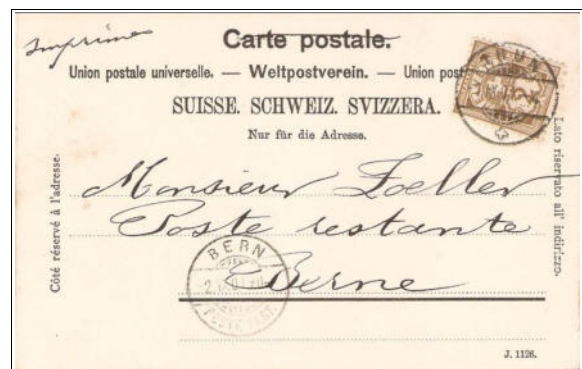 Imprimés
Carte postale.
Union postale universelle. — Weltpostverein. — Union post
SUISSE. SCHWEIZ. SVIZZERA.
Nur für die Adresse.
Côté réservé à l'adresse.
Lato riservato all' indirizzo.
THUN
Monsieur Zoeller
Poste restante
Berne
BERN
J. 1126.